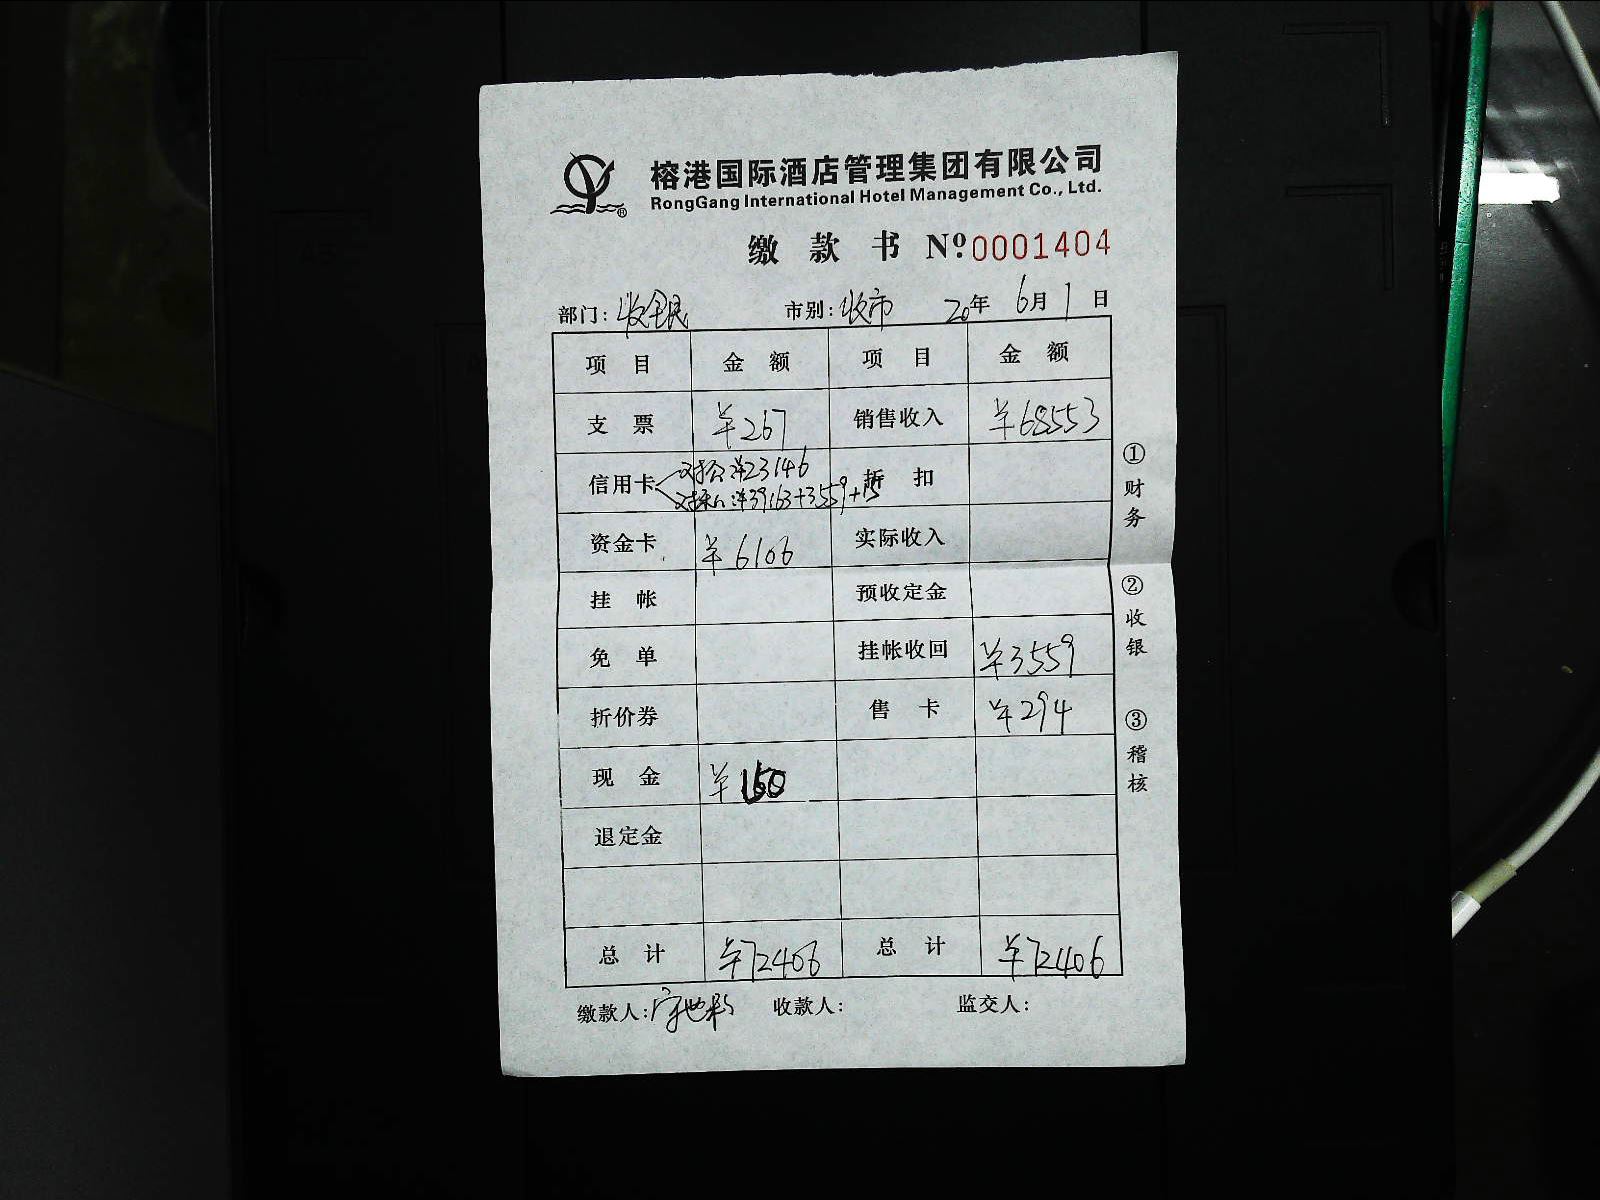 榕港国际酒店管理集团有限公司
RongGang International Hotel Management Co., Ltd.
缴款书 Nº:0001404
部门: 市别: 收市 20年 6月 1日
项目 金额 项目 金额
支票 ¥267 销售收入 ¥68553
信用卡 对公:¥23146 折扣
对私:¥39163+3559+15
资金卡 ¥6106 实际收入
挂帐 预收定金
免单 挂帐收回 ¥3559
折价券 售卡 ¥294
现金 ¥150
退定金
总计 ¥72406 总计 ¥72406
缴款人: 收款人: 监交人:
①财务
②收银
③稽核